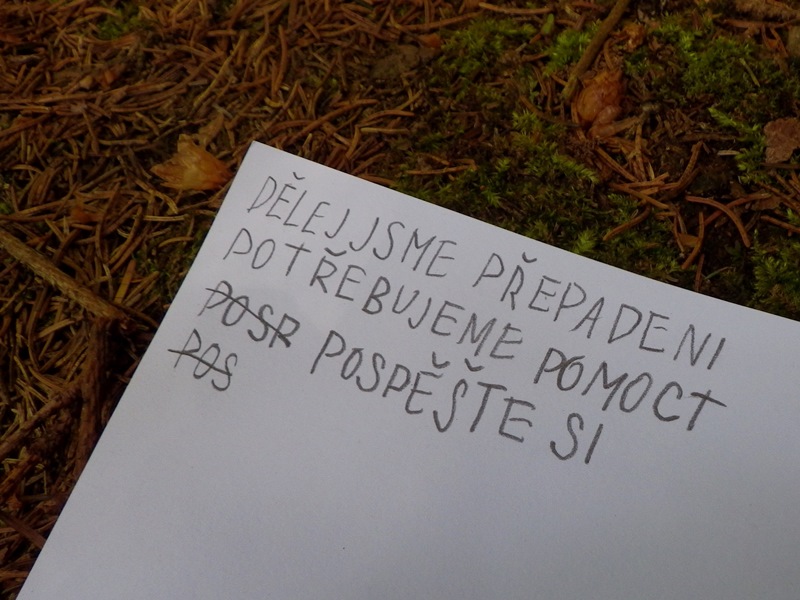 DĚLEJ JSME PŘEPADENI
POTŘEBUJEME POMOCT
POSR POSPĚŠTE SI
POS